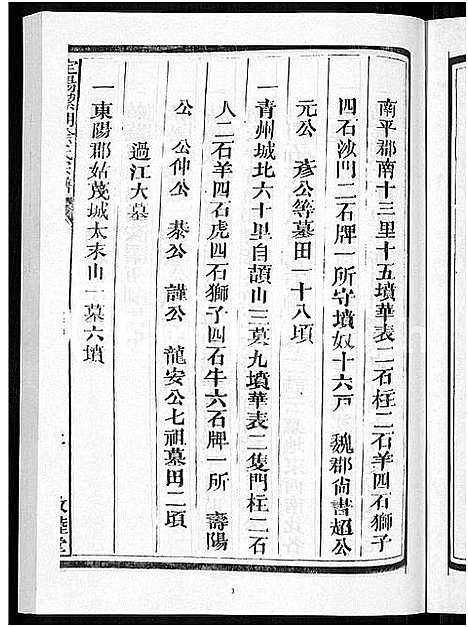 南平郡南十三里十五墳華表二石柱二石羊四石獅子
四石沙門二石牌一所守墳奴十六戸 魏郡尚書超公
元公 彥公等墓田一十八頃
一青州城北六十里自頡山三墓九墳華表二隻門柱二石
人二石羊四石虎四石獅子四石牛六石牌一所 壽陽
公 公仲公 綦公 謹公 龍安公七祖墓田二頃
過江大墓
一東陽郡姑蔑城太末山一墓六墳